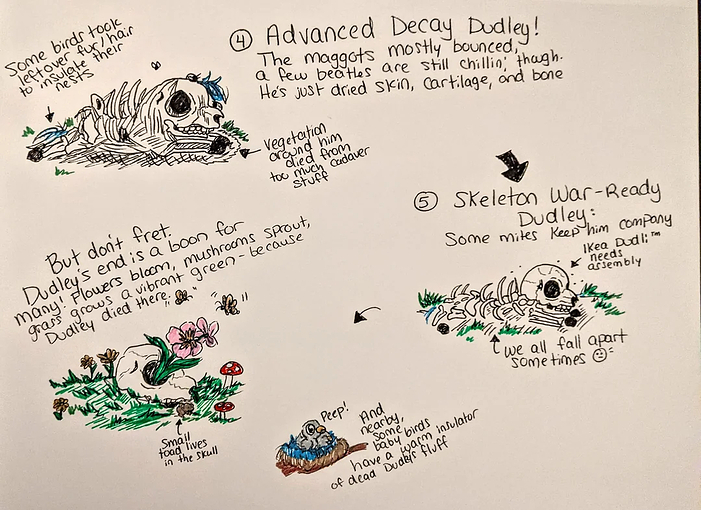 Some birds took
leftover fur/hair
to insulate their
nests
④ Advanced Decay Dudley!
The maggots mostly bounced,
a few beatles are still chillin', though.
He's just dried skin, cartilage, and bone
vegetation
around him
died from
too much cadaver
stuff
⑤ Skeleton War-Ready
Dudley:
Some mites keep him company
Ikea Dudli™
needs
assembly
we all fall apart
sometimes ☺
But don't fret.
Dudley's end is a boon for
many! Flowers bloom, mushrooms sprout,
grass grows a vibrant green - because
Dudley died there.
Small
toad lives
in the skull
Peep!
And
nearby,
some
baby birds
have a warm insulator
of dead Dudley fluff